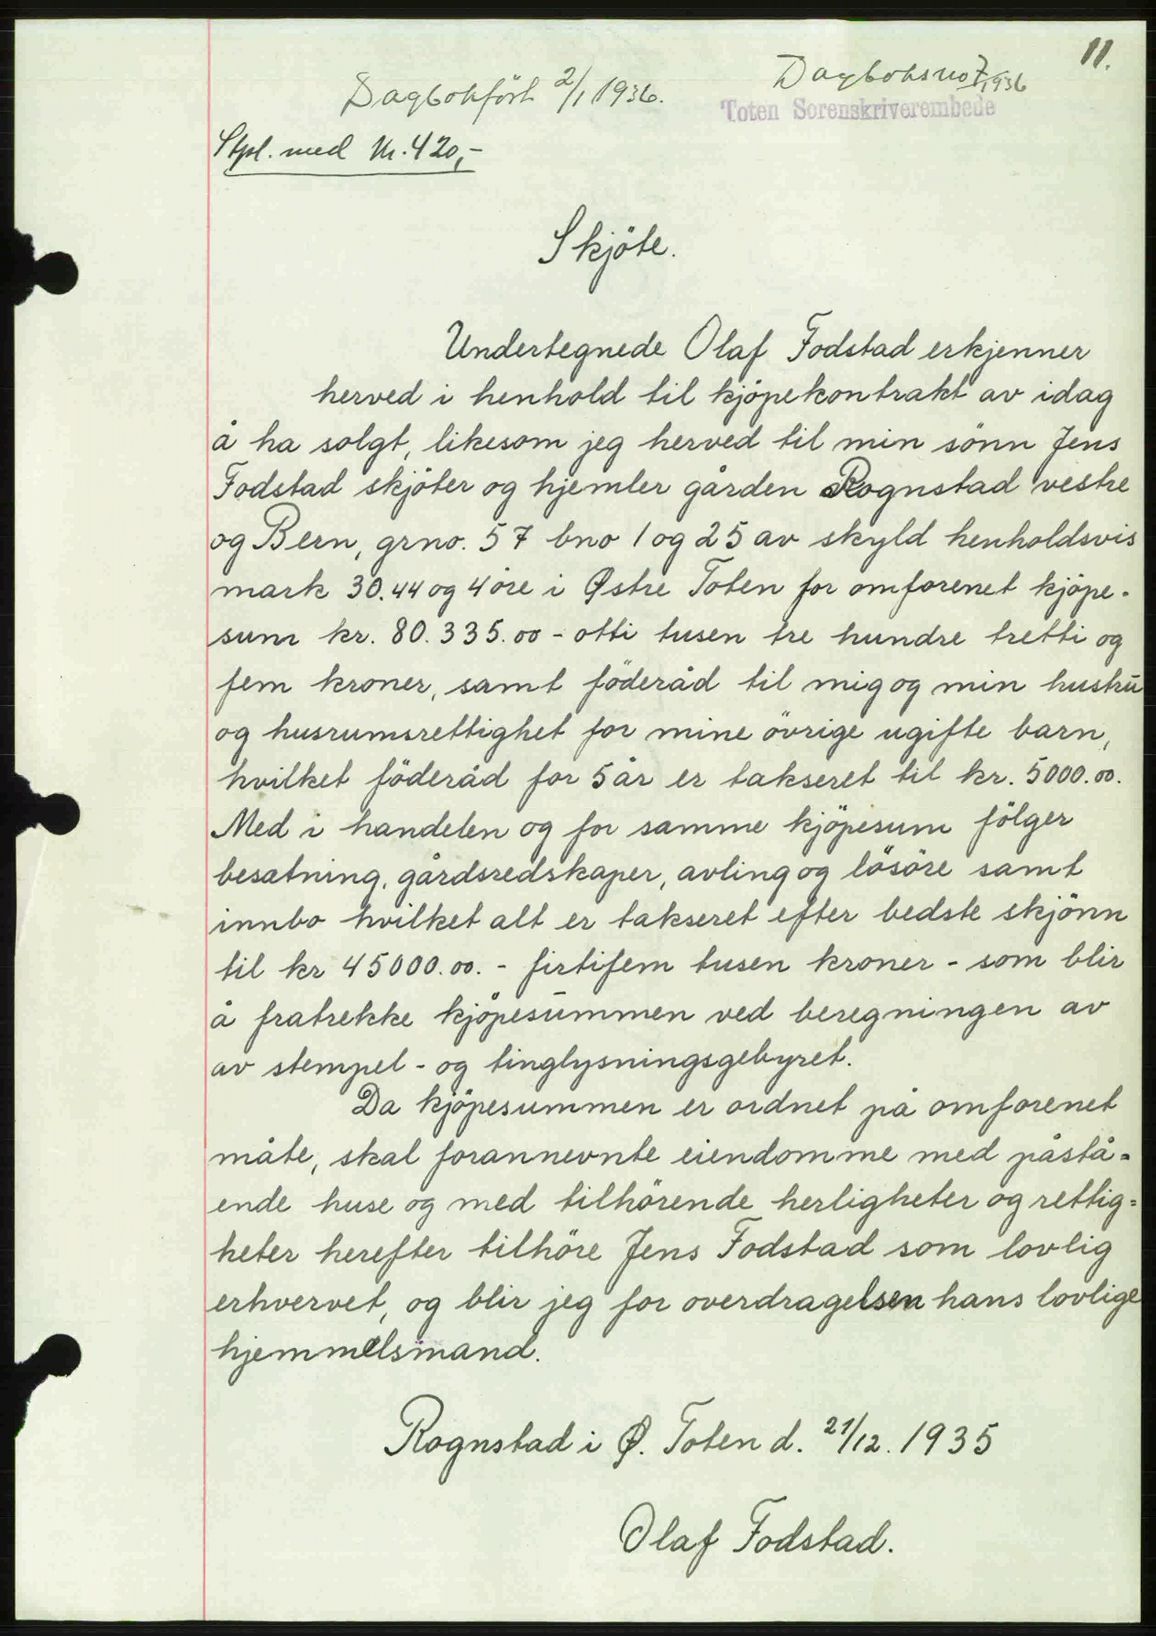 11.
Dagbokført 2/1 1936.
Dagboksno 7/1936
Toten Sorenskriverembede
Stpl. med kr. 420,-
Skjöte.
Undertegnede Olaf Fodstad erkjenner
herved i henhold til kjöpekontrakt av idag
å ha solgt, likesom jeg herved til min sönn Jens
Fodstad skjöter og hjemler gården Rognstad vestre
og Bern, grno. 57 bno 1 og 25 av skyld henholdsvis
mark 30.44 og 4 öre i Østre Toten for omforenet kjöpe-
sum kr. 80.335.00 - otti tusen tre hundre tretti og
fem kroner, samt föderåd til mig og min hustru
og husrumsrettighet for mine övrige ugifte barn,
hvilket föderåd for 5 år er takseret til kr. 5000.00.
Med i handelen og for samme kjöpesum fölger
besætning, gårdsredskaper, avling og lösöre samt
innbo hvilket alt er takseret efter bedste skjönn
til kr 45000.00. - firtifem tusen kroner - som blir
å fratrekke kjöpesummen ved beregningen av
av stempel- og tinglysningsgebyret.
Da kjöpesummen er ordnet på omforenet
måte, skal forannevnte eiendomme med påstå-
ende huse og med tilhörende herligheter og rettig-
heter herefter tilhöre Jens Fodstad som lovlig
erhvervet, og blir jeg for overdragelsen hans lovlige
hjemmelsmand.
Rognstad i Ø. Toten d. 21/12. 1935
Olaf Fodstad.